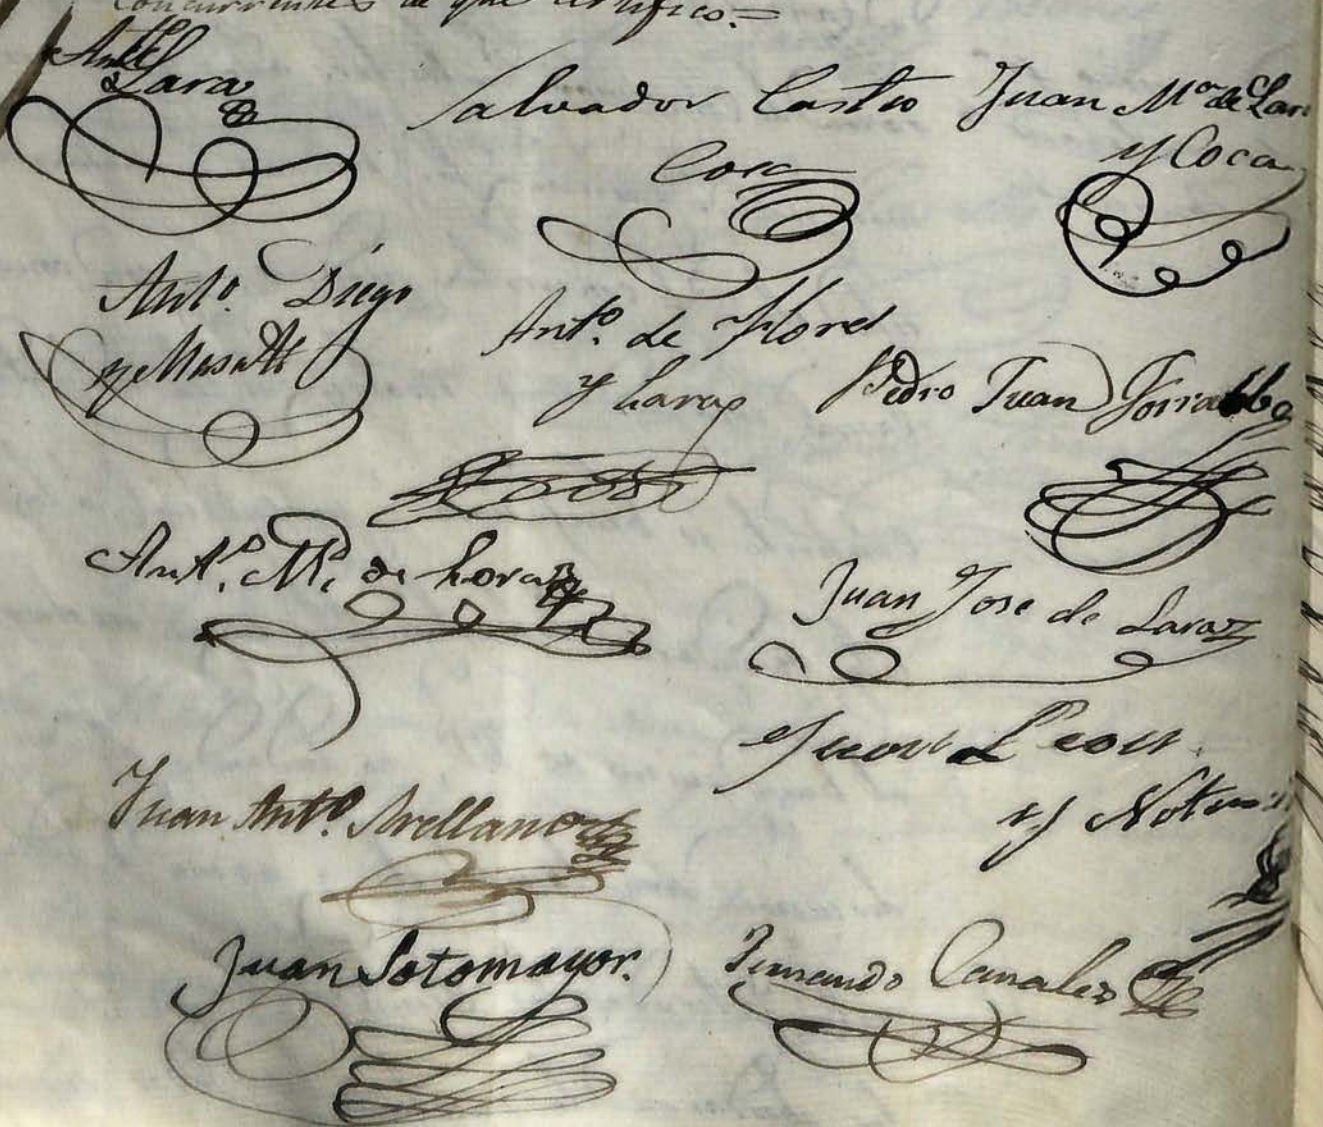 concurrentes de que certifico.=
Antº Lara
Salvador Castro
Coca
Juan Mª de Lara
y Coca
Antº. Diego
Antº. de Flores
y Lara
Pedro Juan
Antº. Mª. de Lora
Juan Jose de Lara
Juan Leon
y
Juan Antº. Arellano
Juan Sotomayor.
Fernando Canales